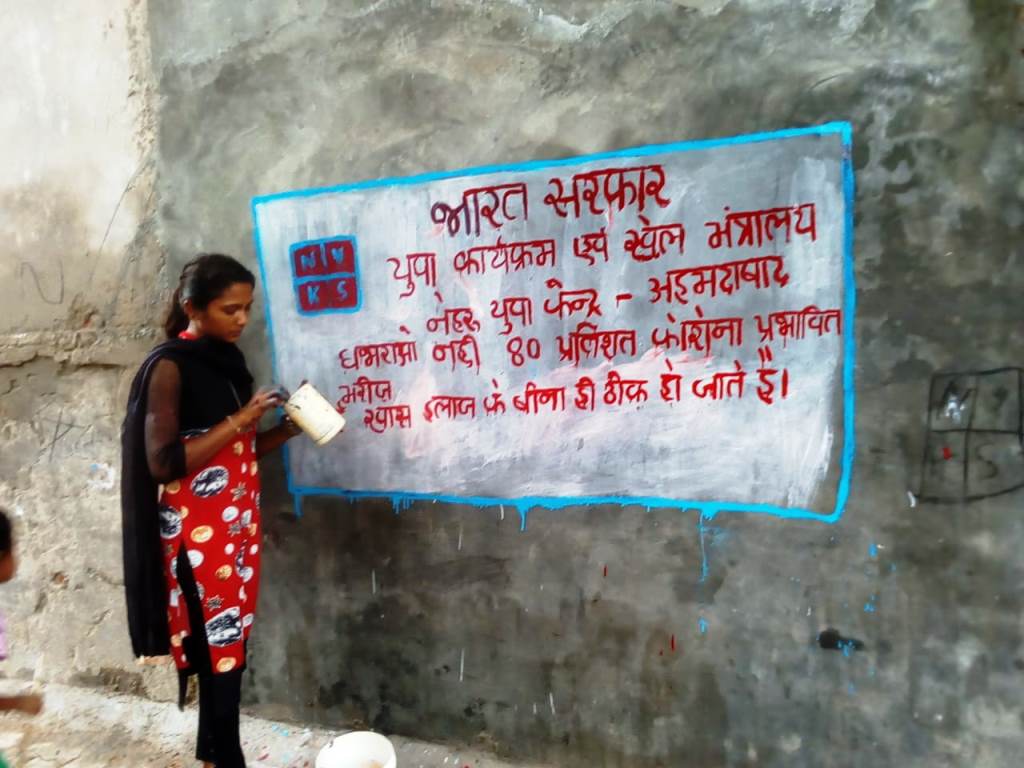 भारत सरकार
NY
KS
युवा कार्यक्रम एवं खेल मंत्रालय
नेहरू युवा केन्द्र - अहमदाबाद
घभराओ नही 80 प्रतिशत कोरोना प्रभावित
मरीज
खास इलाज के बीना ही ठीक हो जाते है।